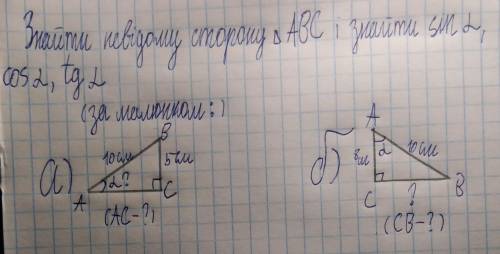 Знайти невідому сторону △ABC і знайти sin α,
cos α, tg α
(за малюнком:)
а)
B
10 см
5 см
α?
A
C
(AC-?)
б)
A
α
10 см
C
?
B
(CB-?)